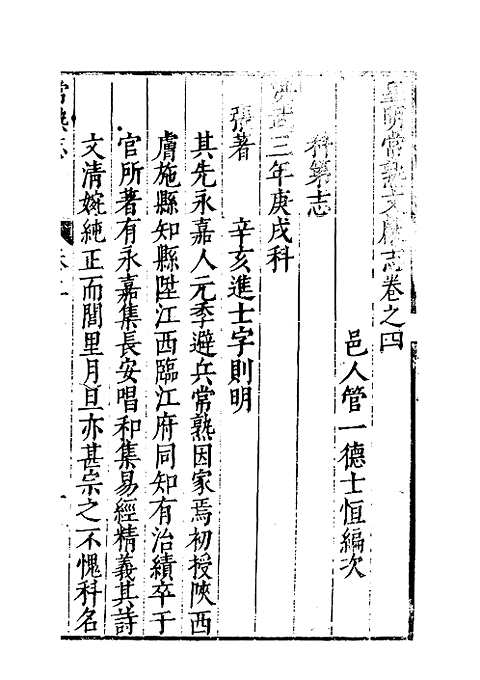 皇明常熟文獻志卷之四
邑人管一德士恒編次
科第志
洪武三年庚戌科
張著　辛亥進士字則明
其先永嘉人元季避兵常熟因家焉初授陝西
膚施縣知縣陞江西臨江府同知有治績卒于
官所著有永嘉集長安唱和集易經精義其詩
文清婉純正而閭里月旦亦甚宗之不愧科名
常熟志